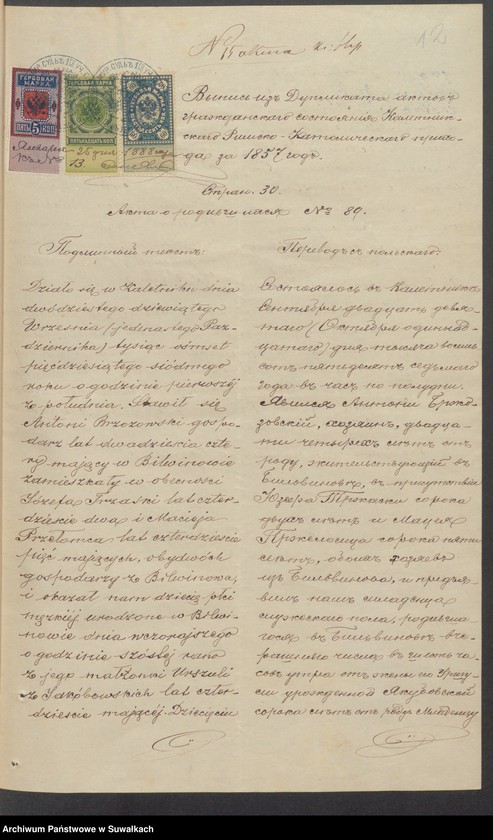 12
Выпись изъ Дупликата актовъ
гражданскаго состоянія Калетник-
скаго Римско-Католическаго прихо-
да за 1857 годъ.
Стран. 30.
Акта о родившихся № 89.
ГЕРБОВАЯ МАРКА
5
ГЕРБОВАЯ МАРКА
1888
Подлинный текстъ:
Działo się w Kaletniku dnia
dwódziestego dziewiątego
Września /jedenastego Paź-
dziernika/ tysiąc ośmset
pięćdziesiątego siódmego
roku o godzinie pierwszéj
z południa. Stawił się
Antoni Brzozowski gospo-
darz lat dwadzieścia czte-
ry mający w Bilwinowie
zamieszkały w obecności
Józefa Trzaski lat czter-
dzieście dwa i Macieja
Przełomca lat czterdzieście
pięć mających, obydwóch
gospodarzy z Bilwinowa,
i okazał nam dziecię płci
męzkiéj urodzone w Bilwi-
nowie dnia wczorajszego
o godzinie szóstéj rano
z jego małżonki Urszuli
z Jakóbowskich lat czter-
dzieście mającéj. Dziecięciu
Переводъ съ польскаго:
Состоялось въ Калетникѣ
Сентября двадцать девя-
таго (Октября одиннад-
цатаго) дня тысяча восемь
сотъ пятьдесятъ седьмаго
года въ часъ по полудни.
Явился Антоній Бржо-
зовскій, хозяинъ, двадца-
ти четырехъ лѣтъ отъ
роду, жительствующій въ
Бильвиновѣ, въ присутствіи
Юзефа Тржаски сорока
двухъ лѣтъ и Мацея
Пржеломца сорока пяти
лѣтъ, обоихъ хозяевъ
изъ Бильвинова, и предъя-
вилъ намъ младенца
мужескаго пола, родивша-
гося въ Бильвиновѣ вче-
рашняго числа въ шесть ча-
совъ утра отъ жены его Уршу-
ли урожденной Якубовской
сорока лѣтъ отъ роду. Младенцу
Archiwum Państwowe w Suwałkach